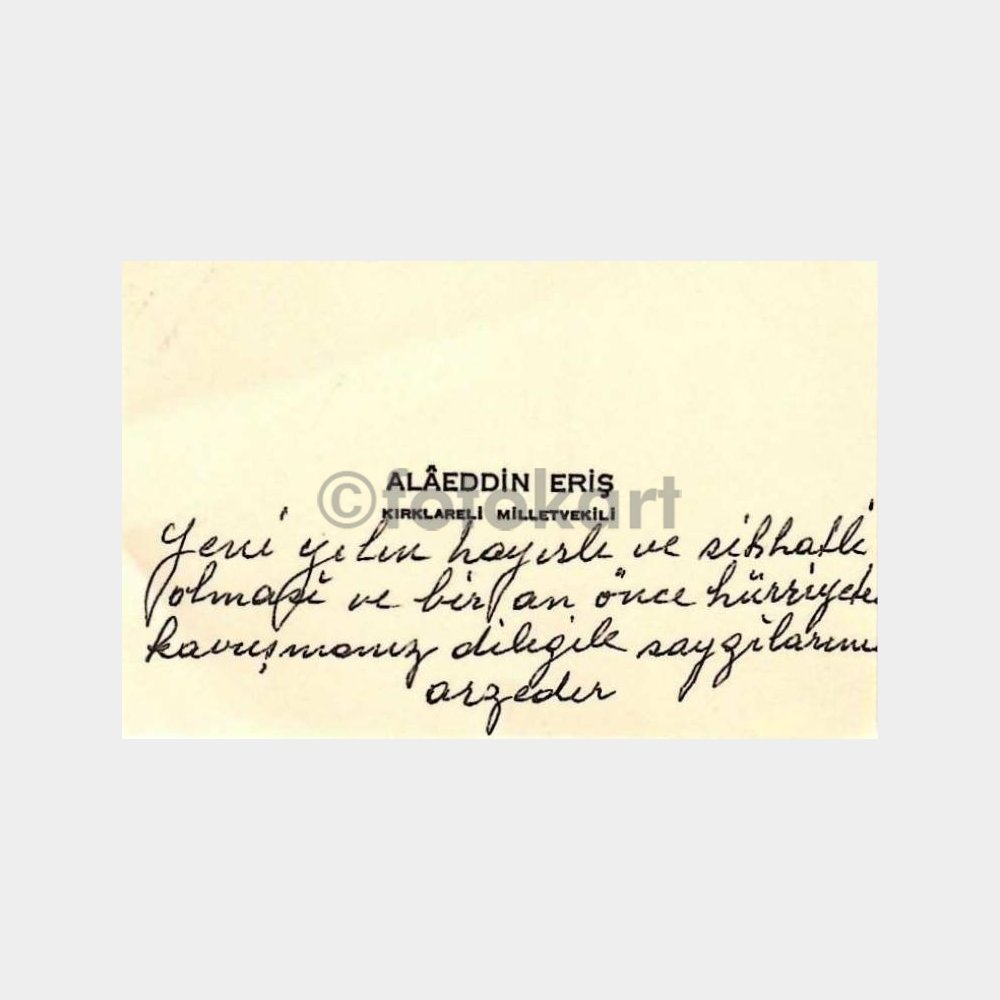 ALÂEDDİN ERİŞ
KIRKLARELİ MİLLETVEKİLİ
©fotokart
Yeni yılın hayırlı ve sıhhatli
olması ve bir an önce hürriyete
kavuşmanız dileğile saygılarımı
arzeder